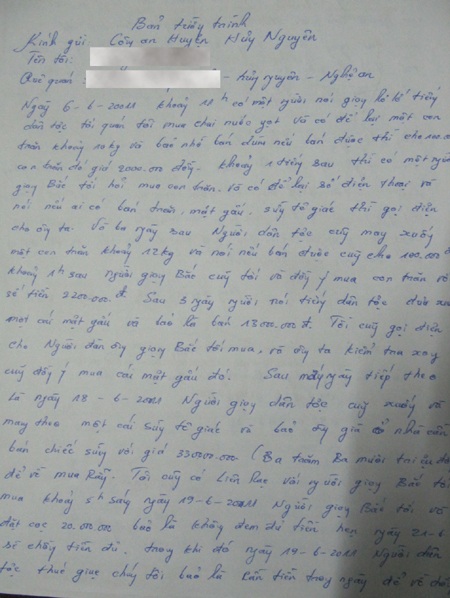 Bản tường trình
Kính gửi Công an Huyện Hưng Nguyên
Tên tôi:
Quê quán - Hưng nguyên - Nghệ an
Ngày 6-6-2011 khoảng 11h có một người nói giọng tiếng
dân tộc tới quán tôi mua chai nước ngọt và có để lại một con
trăn khoảng 10kg và bảo nhờ bán dùm nếu bán được thì cho 100.000
con trăn đó giá 2000.000 đồng. Khoảng 1 tiếng sau thì có một người
giọng Bắc tới hỏi mua con trăn. và có để lại số điện thoại và
nói nếu ai có bán trăn, mật gấu. sừng tê giác thì gọi điện
cho ông ta. Và ba ngày sau Người dân tộc cũng mang xuống
một con trăn khoảng 12kg và nói nếu bán được cũng cho 100.000đ
khoảng 1h sau người giọng Bắc cũng tới và đồng ý mua con trăn với
số tiền 2200.000đ. Sau 3 ngày người nói tiếng dân tộc đưa xuống
một cái mật gấu và bảo là bán 13000.000đ. Tôi cũng gọi điện
cho Người đàn ông giọng Bắc tới mua, và ông ta kiểm tra xong
cũng đồng ý mua cái mật gấu đó. Sau mấy ngày tiếp theo
là ngày 18-6-2011 Người giọng dân tộc cũng xuống và
mang theo một cái sừng tê giác và bảo ông già ở nhà cần
bán chiếc sừng với giá 330000.000 (Ba trăm Ba mươi triệu đồng
để về mua Rẫy. Tôi cũng có liên lạc với người giọng Bắc tới
mua khoảng 5h sáng ngày 19-6-2011 Người giọng Bắc tới và
đặt cọc 20.000.000 bảo là không đem đủ tiền hẹn ngày 21-6
sẽ chồng tiền đủ. trong khi đó ngày 19-6-2011 Người dân
tộc thúc giục chúng tôi bảo là cần tiền trong ngày để về